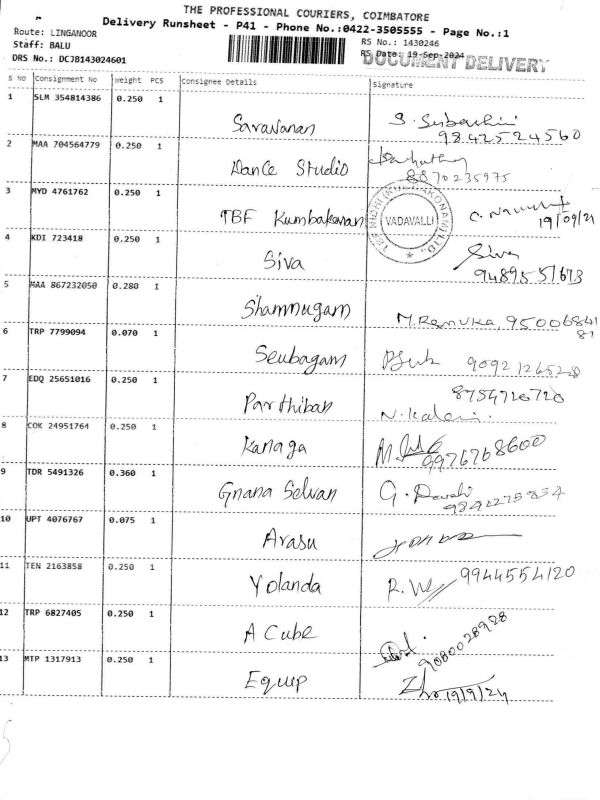 THE PROFESSIONAL COURIERS, COIMBATORE
Delivery Runsheet - P41 - Phone No.:0422-3505555 - Page No.:1
Route: LINGANOOR
Staff: BALU
DRS No.: DCJB143024601
RS No.: 1430246
RS Date: 19-Sep-2024
DOCUMENT DELIVERY
S NO Consignment No Weight PCS Consignee Details Signature
1 SLM 354814386 0.250 1 Saravanan S. Subashini
9842524560
2 MAA 704564779 0.250 1 Dance Studio
8870235975
3 MYD 4761762 0.250 1 TBF Kumbakonam
19/09/24
TBF NIDHI (KUMBAKONAM) LTD.,
VADAVALLI
4 KDI 723418 0.250 1 Siva Siva
9489551673
5 MAA 867232050 0.280 1 Shanmugam M. Renuka, 95006841
6 TRP 7799094 0.070 1 Senbagam 9092126528
7 EDQ 25651016 0.250 1 Parthiban 8754716720
N. Kalai
8 COK 24951764 0.250 1 Kanaga
9976768600
9 TDR 5491326 0.360 1 Gnana Selvan G. Devaki
10 UPT 4076767 0.075 1 Arasu
11 TEN 2163858 0.250 1 Yolanda 9944554120
12 TRP 6827405 0.250 1 A Cube
9080028928
13 MTP 1317913 0.250 1 Equip
19/9/24